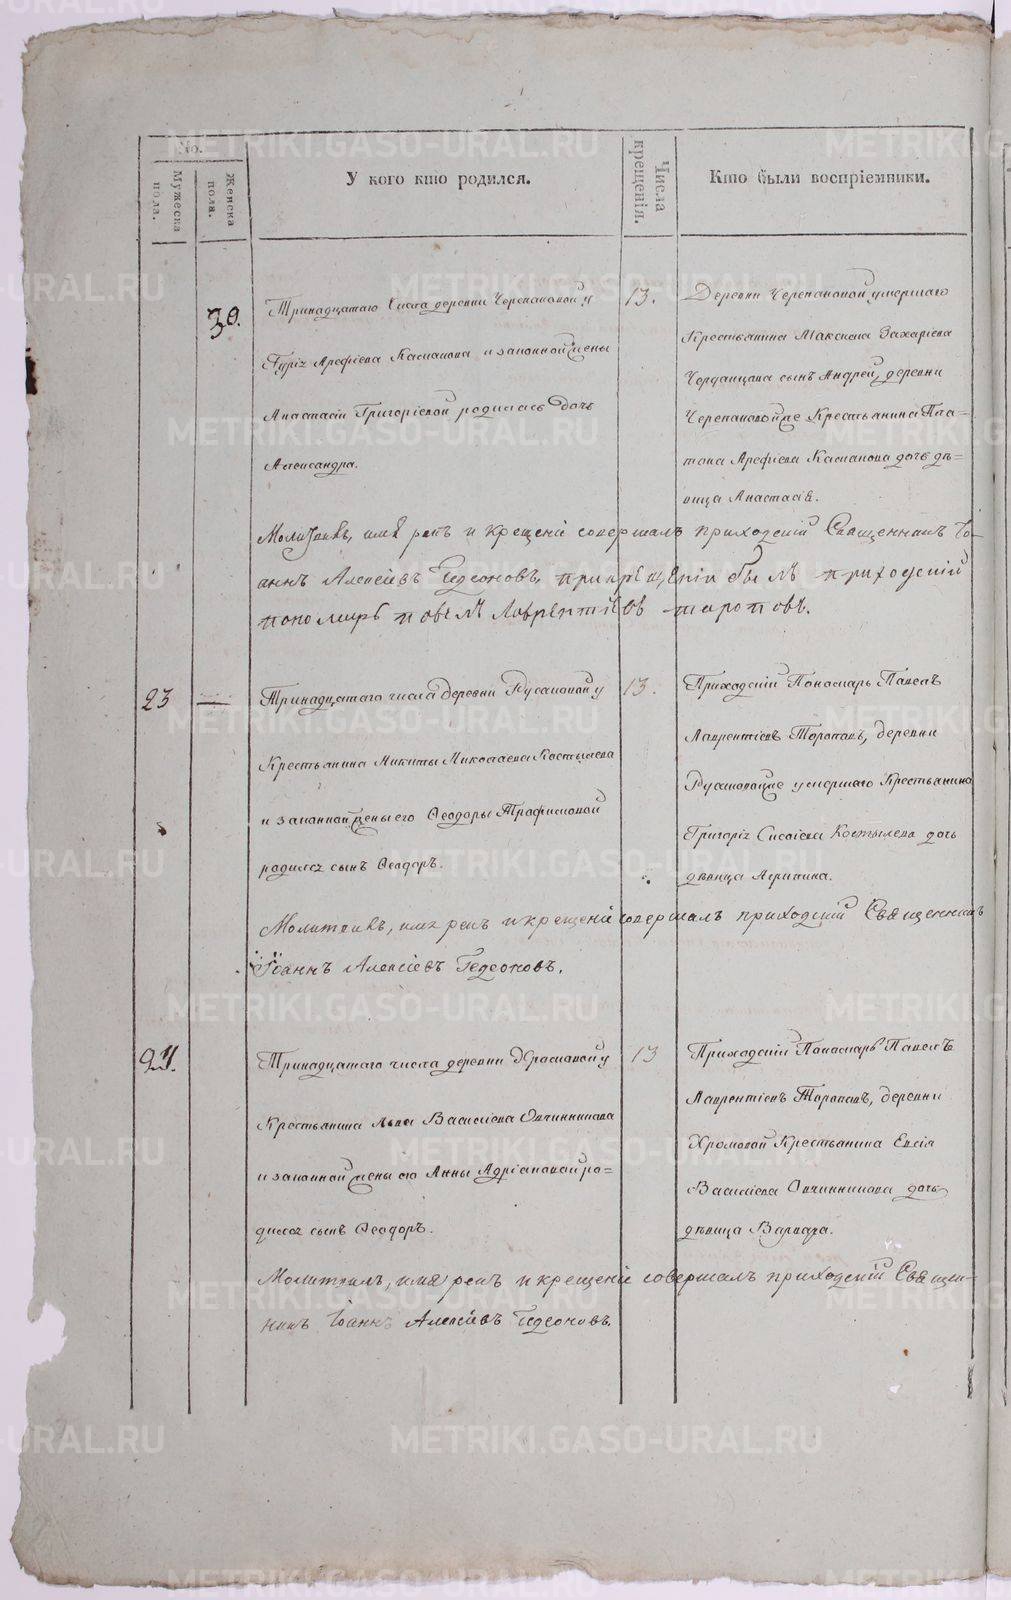 No.
Мужеска пола.
Женска пола.
У кого кто родился.
Числа крещенія.
Кто были воспріемники.
30.
Тринадцатаго Числа деревни Черепановой у
Гурія Арефіева Касианова и законной жены
Анастасіи Григоріевой родилась дочь
Александра.
13.
Деревни Черепановой умершаго
Крестьянина Максима Захаріева
сынъ Андрей, деревни
Черепановойже Крестьянина Пла-
тона Арефіева Касианова дочь дѣ-
вица Анастасія.
Молитвовъ, имя рекъ и крещеніе совершалъ приходскій Священникъ Іо-
аннъ Алексіевъ Гедеоновъ, при крещеніи былъ приходскій
пономарь Павелъ Лаврентіевъ Тороповъ.
23
Тринадцатаго числа деревни Русаковой у
Крестьянина Никиты Николаева Костылева
и законной жены его Ѳеодоры Трофимовой
родился сынъ Ѳеодоръ.
13.
Приходскій Пономарь Павелъ
Лаврентіевъ Тороповъ, деревни
Русаковойже умершаго Крестьянина
Григорія Сисоіева Костылева дочь
дѣвица Агрипина.
Молитвовъ, имя рекъ и крещеніе совершалъ приходскій Священникъ
Іоаннъ Алексіевъ Гедеоновъ.
24.
Тринадцатаго числа деревни Хромовой у
Крестьянина Льва Василіева Овчинникова
и законной жены его Анны Адріановой ро-
дился сынъ Ѳеодоръ.
13
Приходскій Пономарь Павелъ
Лаврентіевъ Тороповъ, деревни
Хромовой Крестьянина Евсія
Василіева Овчинникова дочь
дѣвица Варвара.
Молитвовъ, имя рекъ и крещеніе совершалъ приходскій Священ-
никъ Іоаннъ Алексіевъ Гедеоновъ.
METRIKI.GASO-URAL.RU